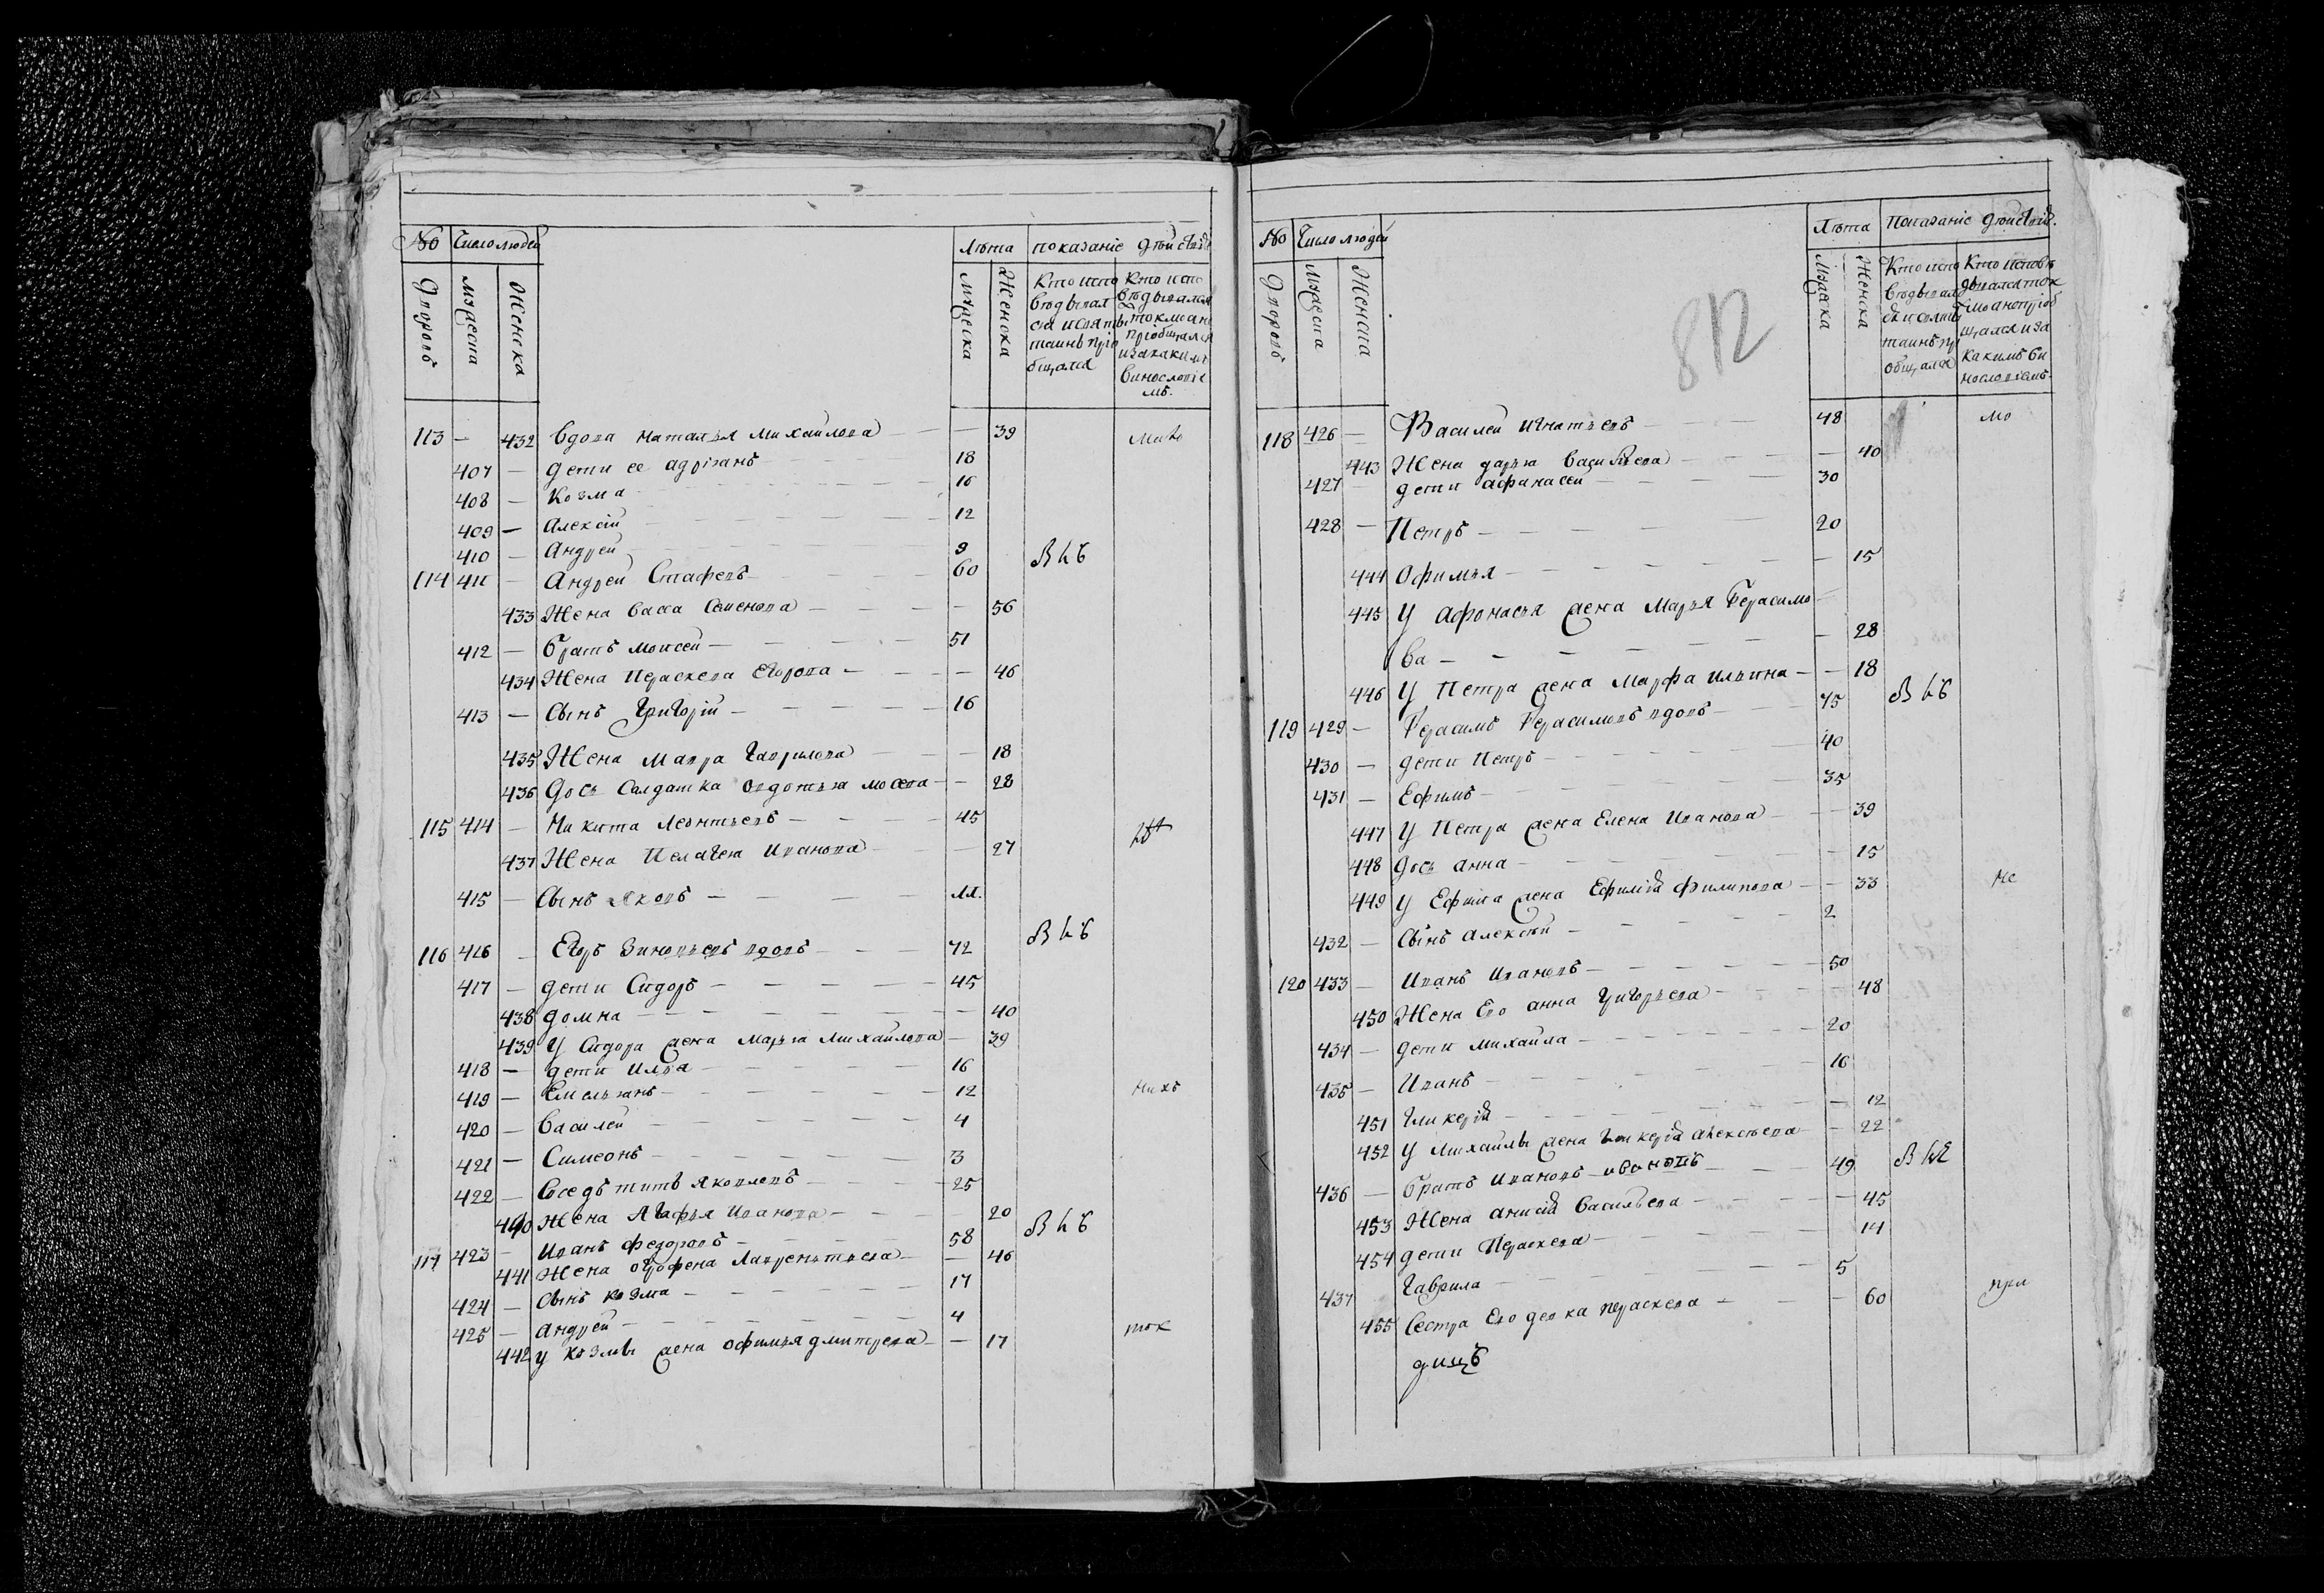 No Число людей Лѣта показаніе дѣйствъ
Дворовъ Мужеска Женска Мужеска Женска
Кто испо
вѣдывал
ся и святы
таинъ прio
бщался
Кто испо
вѣдывался
токмо а не
пріобщался
и за какимъ
винословіе
мъ.
113 — 432 Вдова Наталья Михайлова — 39
407 — дети ее Адріанъ 18
408 — Козма 16
409 — Алексій 12
410 — Андрей 9
114 411 — Андрей Стафевъ 60
433 Жена Васса Семенова — 56
412 — Братъ Моисей 51
434 Жена Пераскева Егорова — 46
413 — Сынъ Григорій 16
435 Жена Мавра Гаврилова — 18
436 Дочь Салдатка Овдотья Мосева — 28
115 414 — Никита Леонтьевъ 45
437 Жена Пелагея Иванова — 27
415 — Сынъ Яковъ мл.
116 416 — Егоръ Зиновьевъ вдовъ 72
417 — дети Сидоръ 45
438 Домна — 40
439 У Сидора жена Марья Михайлова — 39
418 — дети Илья 16
419 — Емельянъ 12
420 — Василей 4
421 — Симеонъ 3
422 — Соседъ Титъ Яковлевъ 25
440 Жена Агафья Иванова — 20
117 423 — Иванъ Федоровъ 58
441 Жена Огрофена Лаврентьева — 46
424 — Сынъ Козма 17
425 — Андрей 4
442 У Козмы жена Офимья Дмитрева — 17
812
No Число людей Лѣта Показаніе дѣйствій.
Дворовъ Мужеска Женска Мужеска Женска
Кто испо
вѣдывал
ся и святы
таинъ прi
общался
Кто исповѣ
дывался ток
мо а не пріоб
щался и за
какимъ ви
нословіемъ.
118 426 — Василей Игнатьевъ 48
443 Жена Дарья Васильева — 40
427 дети Афанасей 30
428 — Петръ 20
444 Офимья — 15
445 У Афонасья жена Марья Герасимо
ва — 28
446 У Петра жена Марфа Ильина — 18
119 429 — Герасимъ Герасимовъ вдовъ 75
430 — дети Петръ 40
431 — Ефимъ 35
447 У Петра жена Елена Иванова — 39
448 Дочь Анна — 15
449 У Ефима жена Ефимія Филипова — 33
432 — Сынъ Алексѣй 2
120 433 — Иванъ Ивановъ 50
450 Жена Его Анна Григорьева — 48
434 — дети Михайла 20
435 — Иванъ 16
451 Гликерія — 12
452 У Михайлы жена Гликерія Алексѣева — 22
436 — Братъ Ивановъ Ивановъ 49
453 Жена Анисія Васильева — 45
454 дети Пераскева — 14
437 Гаврила 5
455 Сестра Его девка Пераскева — 60
дицъ